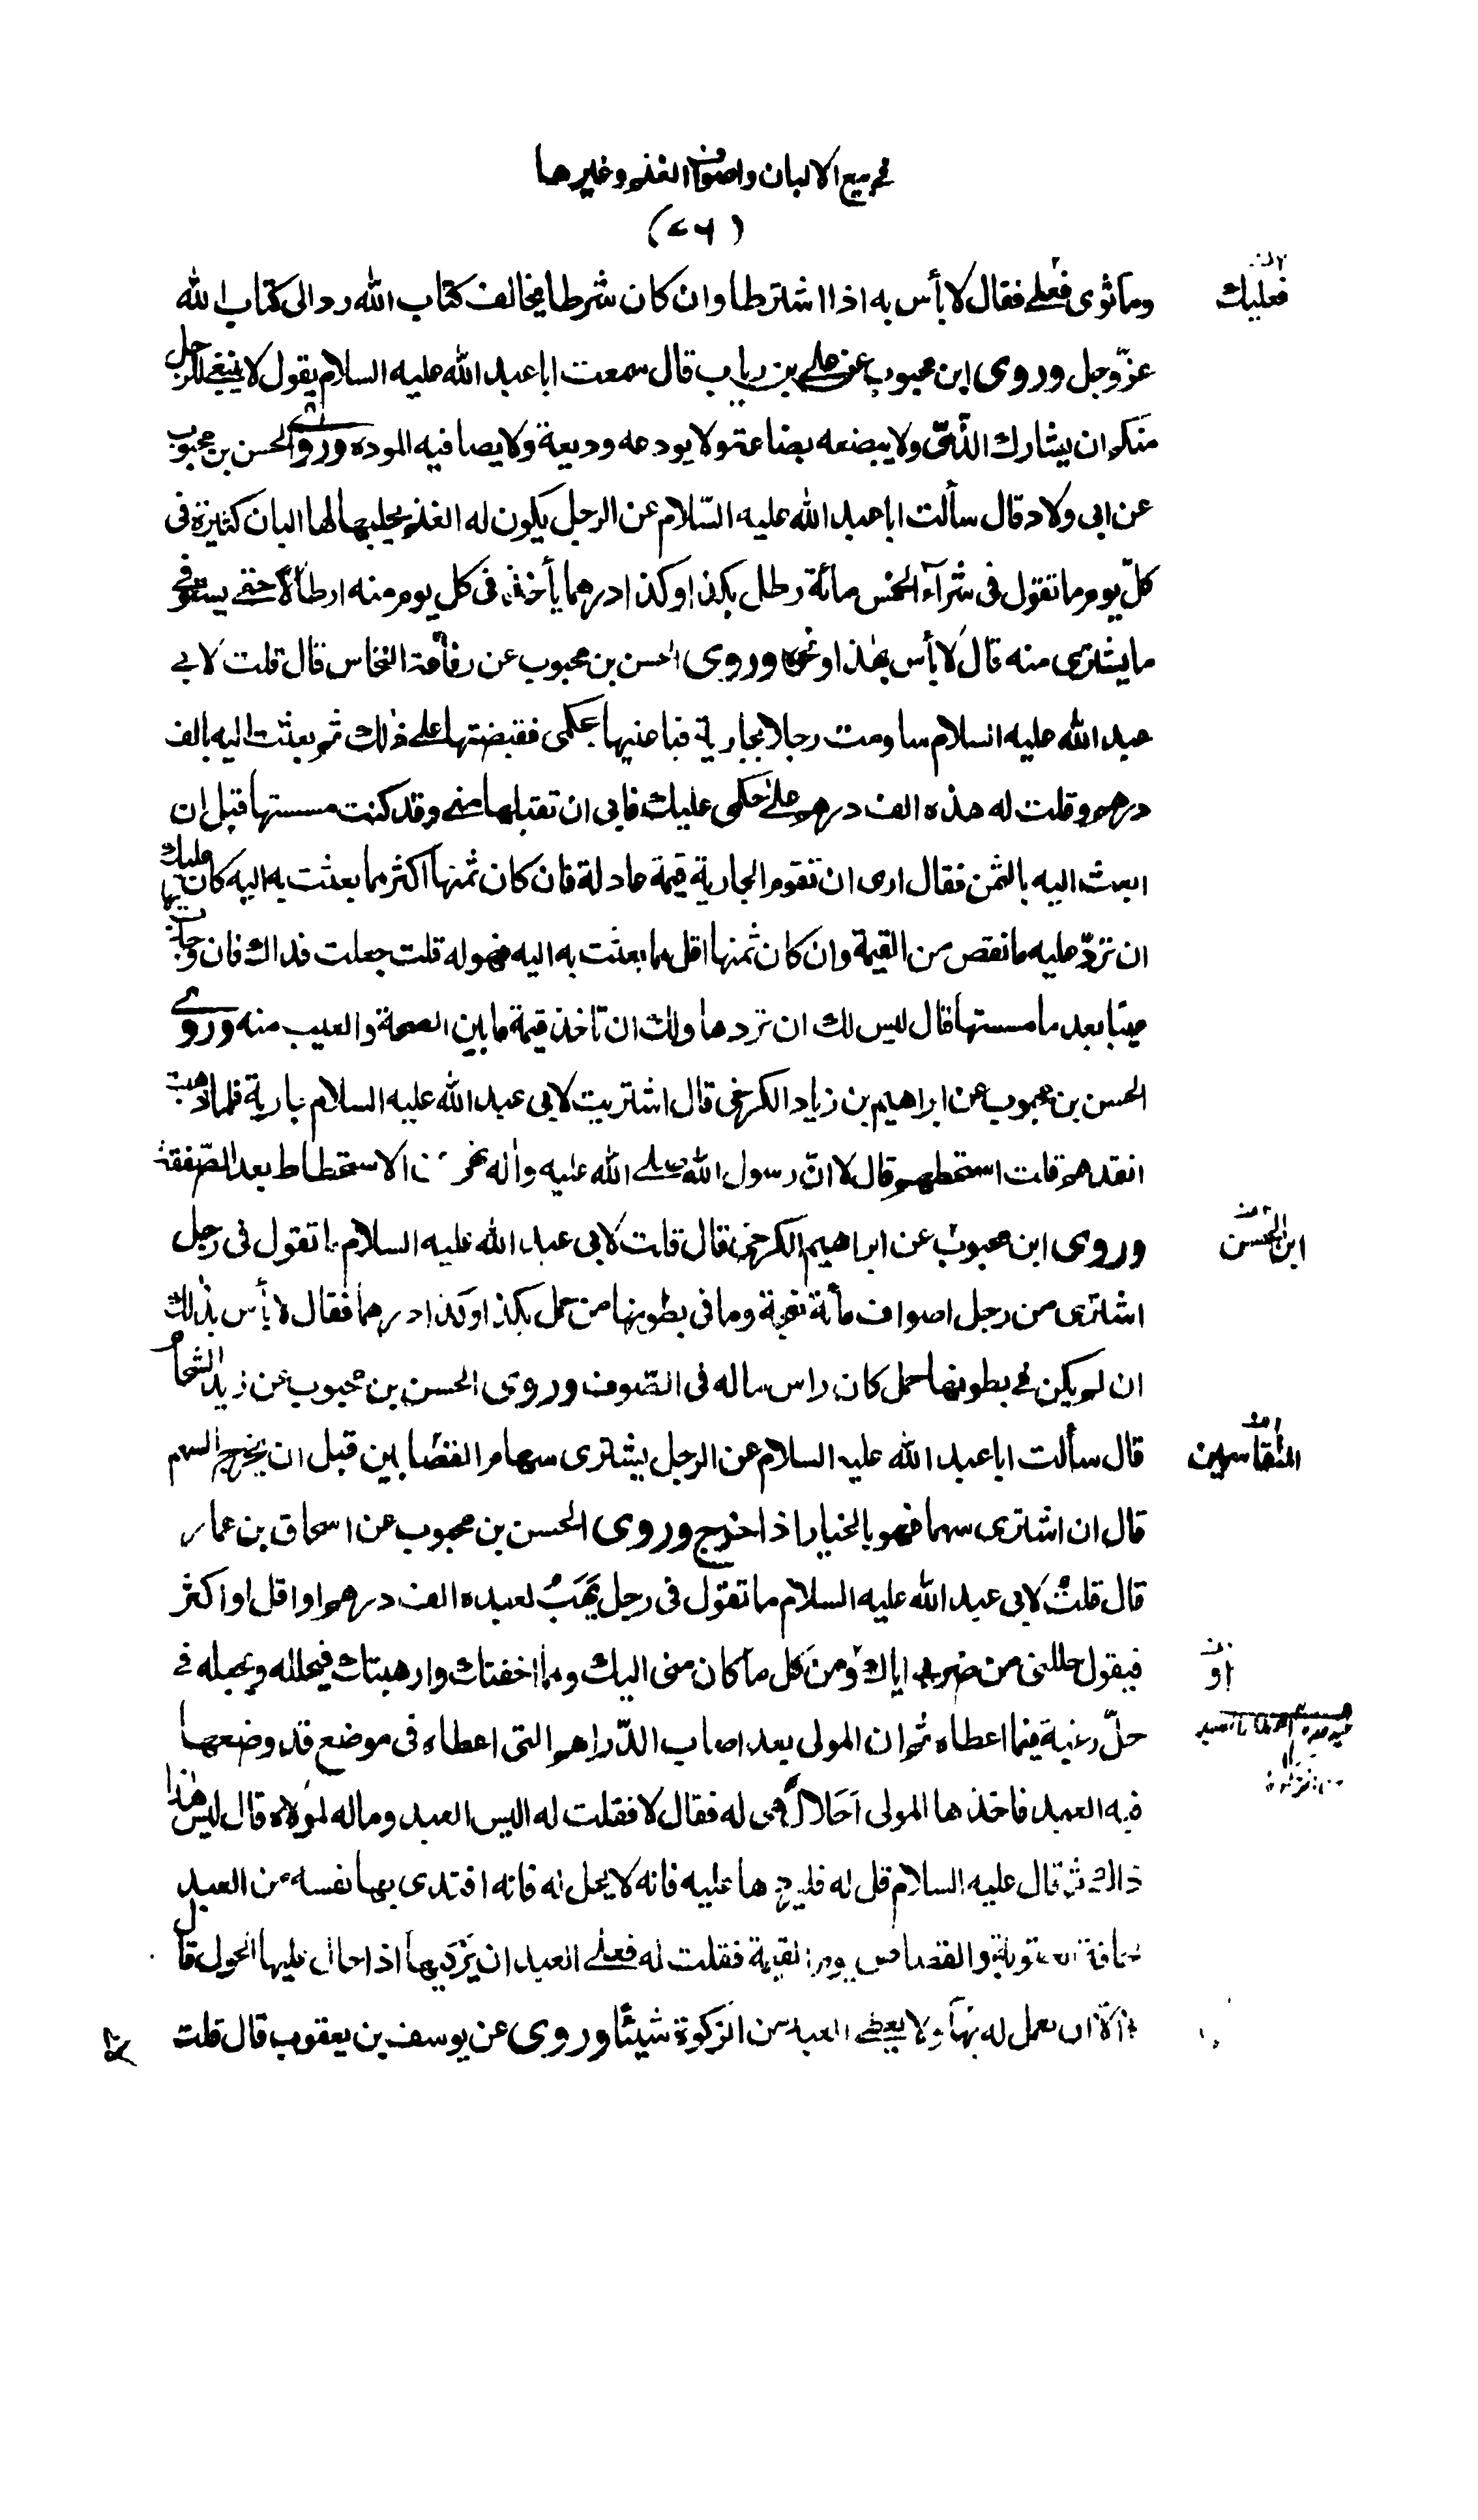 فى بيع الالبان واصواف الغنم وغيرها
(٧٦)
وما توى فعلى فقال لا بأس به اذا اشترطا وان كان شرطا يخالف كتاب الله رد الى كتاب الله
فعليك
عزّ وجل وروى ابن محبوب عن على بن رياب قال سمعت ابا عبد الله عليه السلام يقول لا ينبغى للرجل
منكم ان يشارك الذّمّى ولا يبضعه بضاعة ولا يودعه وديعة ولا يصافيه الموده وروى الحسن بن محبوب
عن ابى ولاد قال سألت ابا عبد الله عليه السّلام عن الرجل يكون له الغنم يحلبها لها البان كثيرة فى
كلّ يوم ما تقول فى شرآء الخمس مائة رطل بكذا وكذا درهما يأخذ فى كل يوم منه ارطالا حتى يستوفى
ما يشترى منه قال لا بأس بهذا ونحوه وروى الحسن بن محبوب عن رفاعة النخاس قال قلت لابى
عبد الله عليه السلام ساومت رجلا بجارية فباعنيها بحكمى فقبضتها على ذلك ثم بعثت اليه بالف
درهم وقلت له هذه الف درهم على حكمى عليك فابى ان تقبلها منى وقد كنت مسستها قبل ان
ابعث اليه بالثمن فقال ارى ان تقوم الجارية قيمة عادلة فان كان ثمنها اكثر مما بعثت به اليه كان عليك
ان تردّ عليه ما نقص من القيمة وان كان ثمنها اقل مما بعثت به اليه فهو له قلت جعلت فداك فان وجدت بها
عيبا بعد ما مسستها قال ليس لك ان تردها ولك ان تاخذ قيمة ما بين الصحة والعيب منه وروى
الحسن بن محبوب عن ابراهيم بن زياد الكرخى قال اشتريت لابى عبد الله عليه السلام جارية فلما ذهبت
انقدهم قلت استحطهم قال لا انّ رسول الله صلى الله عليه واله نهى عن الاستحطاط بعد الصّفقة
وروى ابن محبوب عن ابراهيم الكرخى قال قلت لابى عبد الله عليه السلام ما تقول فى رجل
ابن الحسن
اشترى من رجل اصواف مأة نعجة وما فى بطونها من حمل بكذا وكذا درهما فقال لا بأس بذلك
ان لم يكن فى بطونها حمل كان راس ماله فى الصّوف وروى الحسن بن محبوب عن زيد الشحام
قال سألت ابا عبد الله عليه السلام عن الرجل يشترى سهام القصّابين قبل ان يخرج السهم
قال ان اشترى سهما فهو بالخيار اذا خرج وروى الحسن بن محبوب عن اسحاق بن عمار
قال قلت لابى عبد الله عليه السلام ما تقول فى رجل يهَبُ لعبده الف درهم او اقل او اكثر
فيقول حللنى من ضربى اياك ومن كل ما كان منى اليك ومما اخفتك وارهبتك فيحلله ويجعله فى
او
حلّ رغبة فيما اعطاه ثم ان المولى بعد اصاب الدّراهم التى اعطاه فى موضع قد وضعها
فيه العبد فاخذها المولى احَلالٌ هى له فقال لا فقلت له اليس العبد وماله لمولاه قال ليس هذا
ذاك ثم قال عليه السلام قل له فليردها عليه فانه لا يحل له فانه افتدى بها نفسه من العبد
مخافة العقوبة والقصاص يوم القيمة فقلت له فعلى العبد ان يزكيها اذا حال عليها الحول قال
لا الا ان يعمل له بها ولا يعطى العبد من الزكوة شيئًا وروى عن يوسف بن يعقوب قال قلت